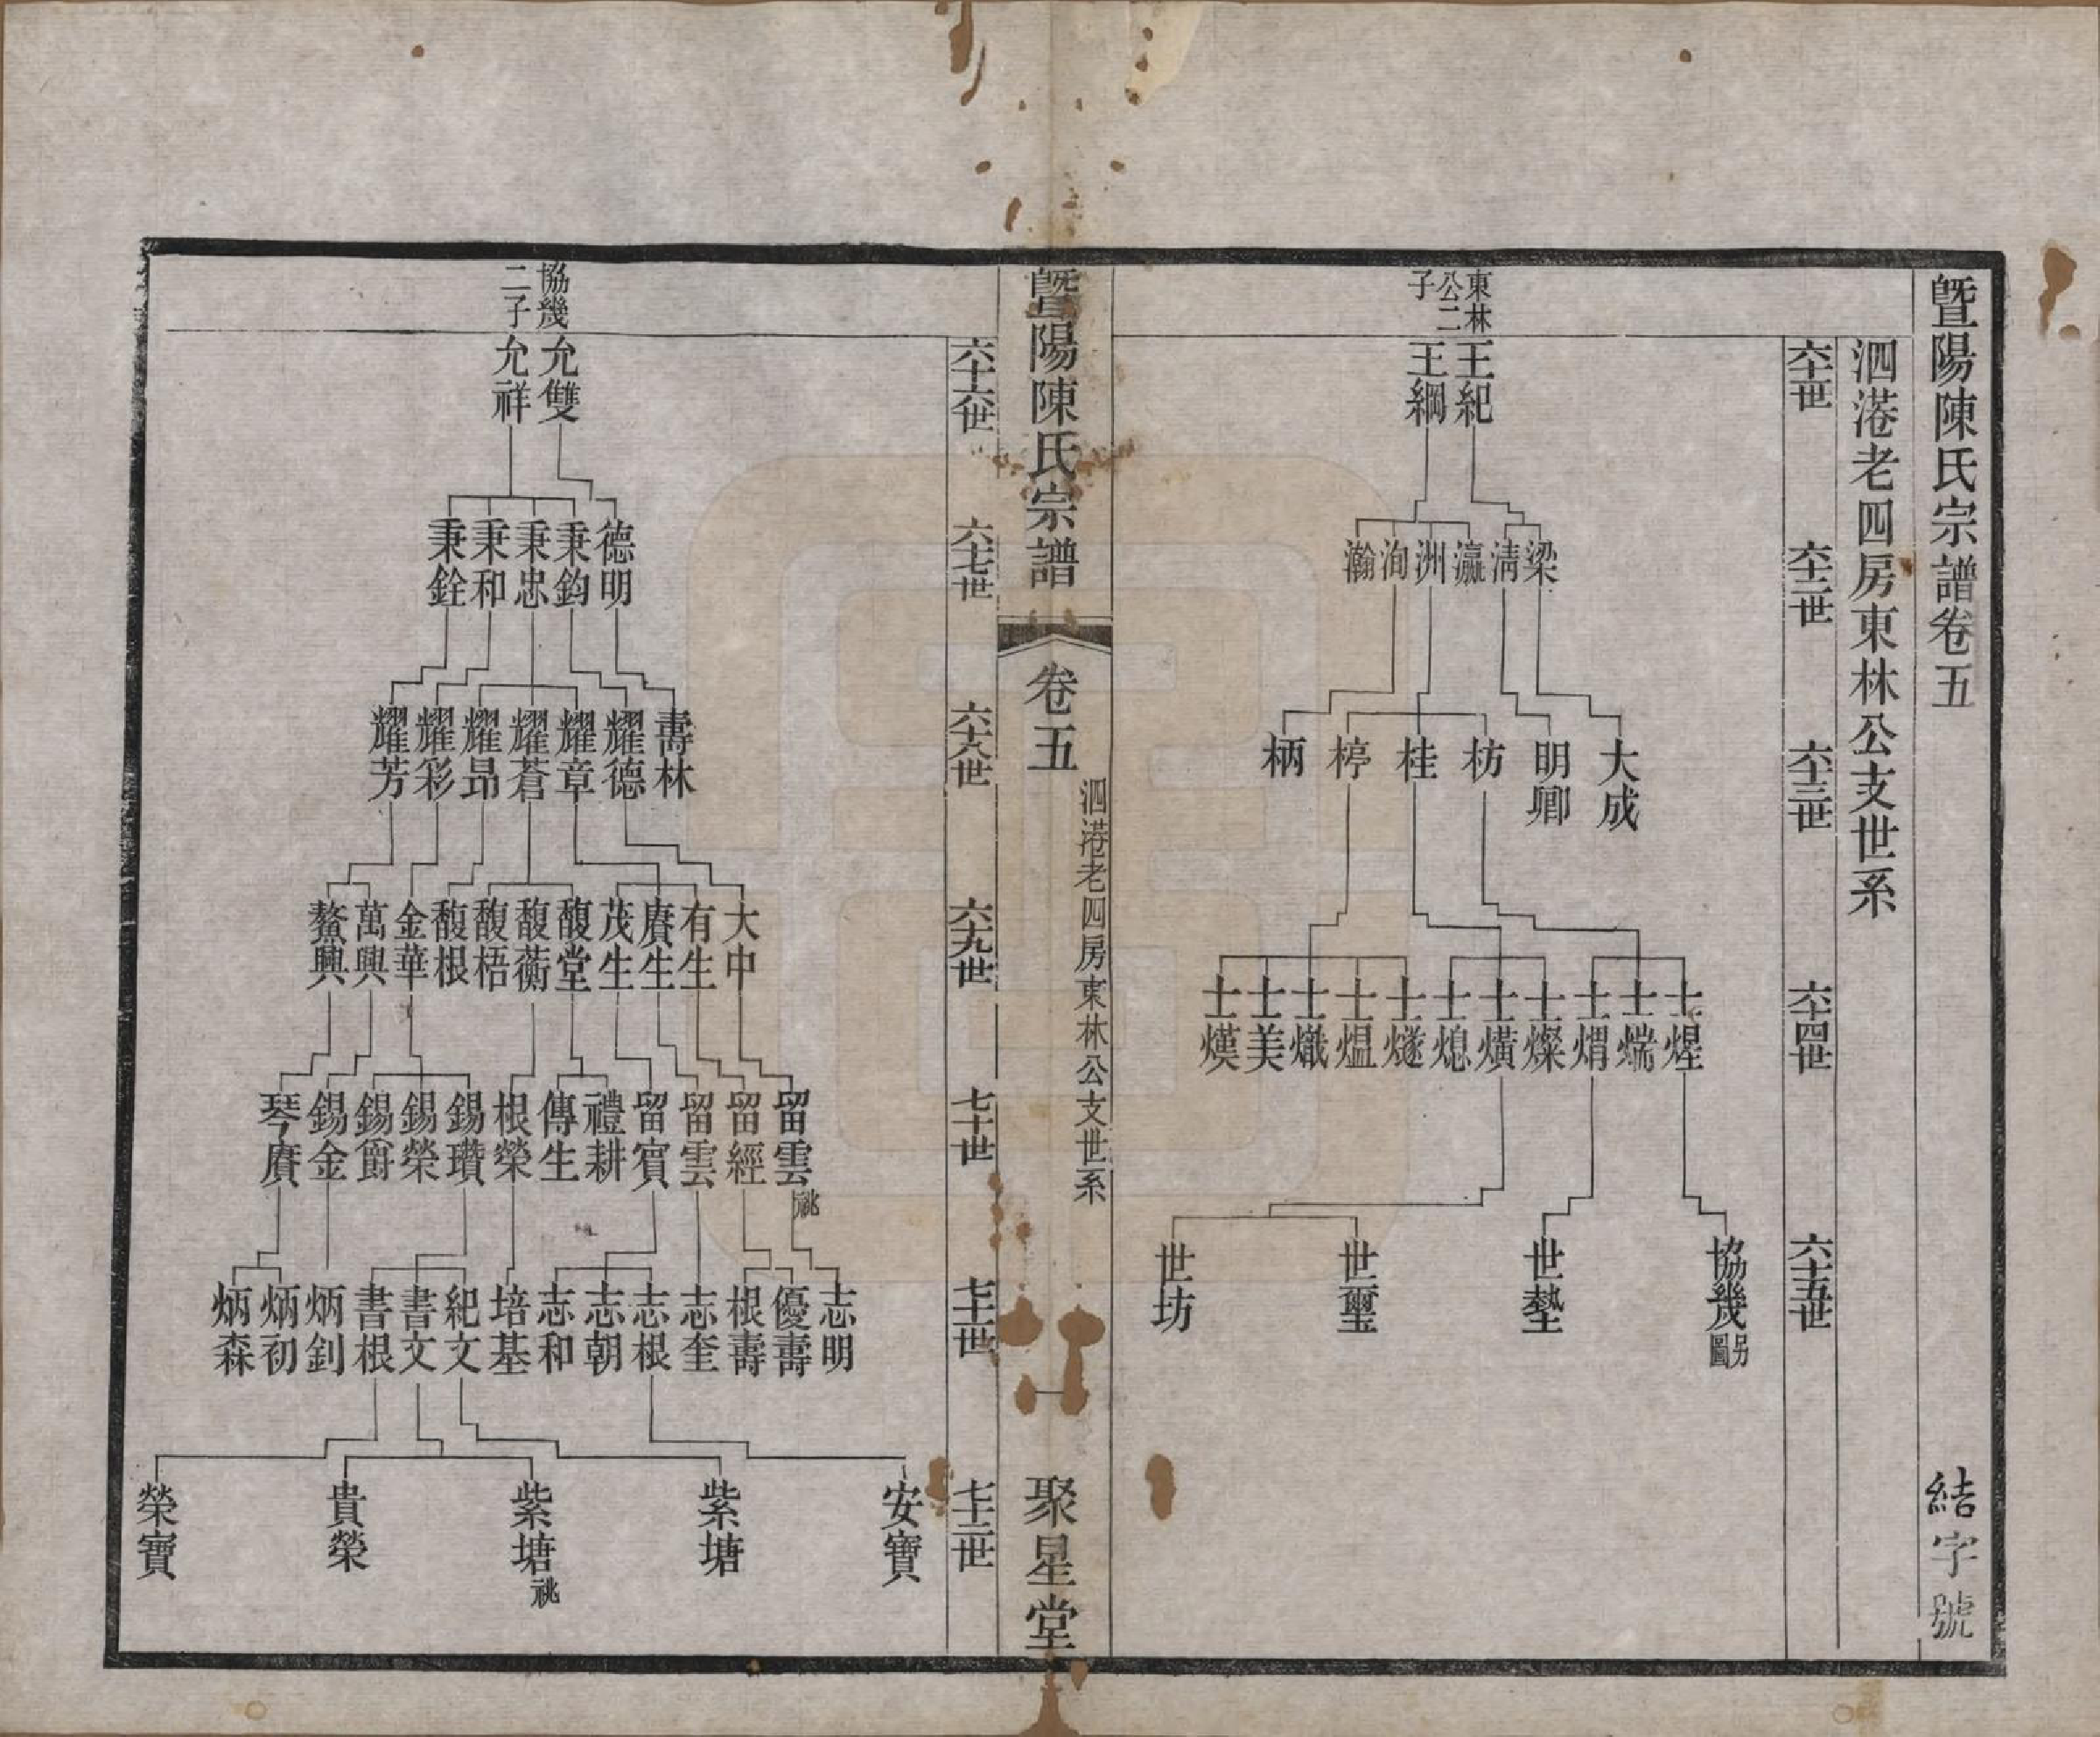 暨陽陳氏宗譜卷五
結字號
泗港老四房東林公支世系
六十一世
六十二世
六十三世
六十四世
六十五世
東林公二子
王紀
王綱
梁
淸
瀛
洲
洵
瀚
大成
明卿
枋
桂
楟
柄
士煋
士煓
士熉
士燦
士熿
士熄
士燧
士熅
士熾
士美
士熯
協幾 另圖
世塾
世璽
世坊
暨陽陳氏宗譜
卷五
泗港老四房東林公支世系
一
聚星堂
六十六世
六十七世
六十八世
六十九世
七十世
七十一世
七十二世
協幾二子
允雙
允祥
德明
秉鈞
秉忠
秉和
秉銓
壽林
耀德
耀章
耀蒼
耀昂
耀彩
耀芳
大中
有生
賡生
茂生
馥堂
馥蘅
馥梧
馥根
金華
萬興
鰲興
留雲 兼祧
留經
留雲
留賓
禮耕
傳生
根榮
錫瓚
錫榮
錫爵
錫金
琴賡
志明
優壽
根壽
志奎
志根
志朝
志和
培基
紀文
書文
書根
炳釗
炳初
炳森
安寶
紫塘
紫塘 祧
貴榮
榮寶